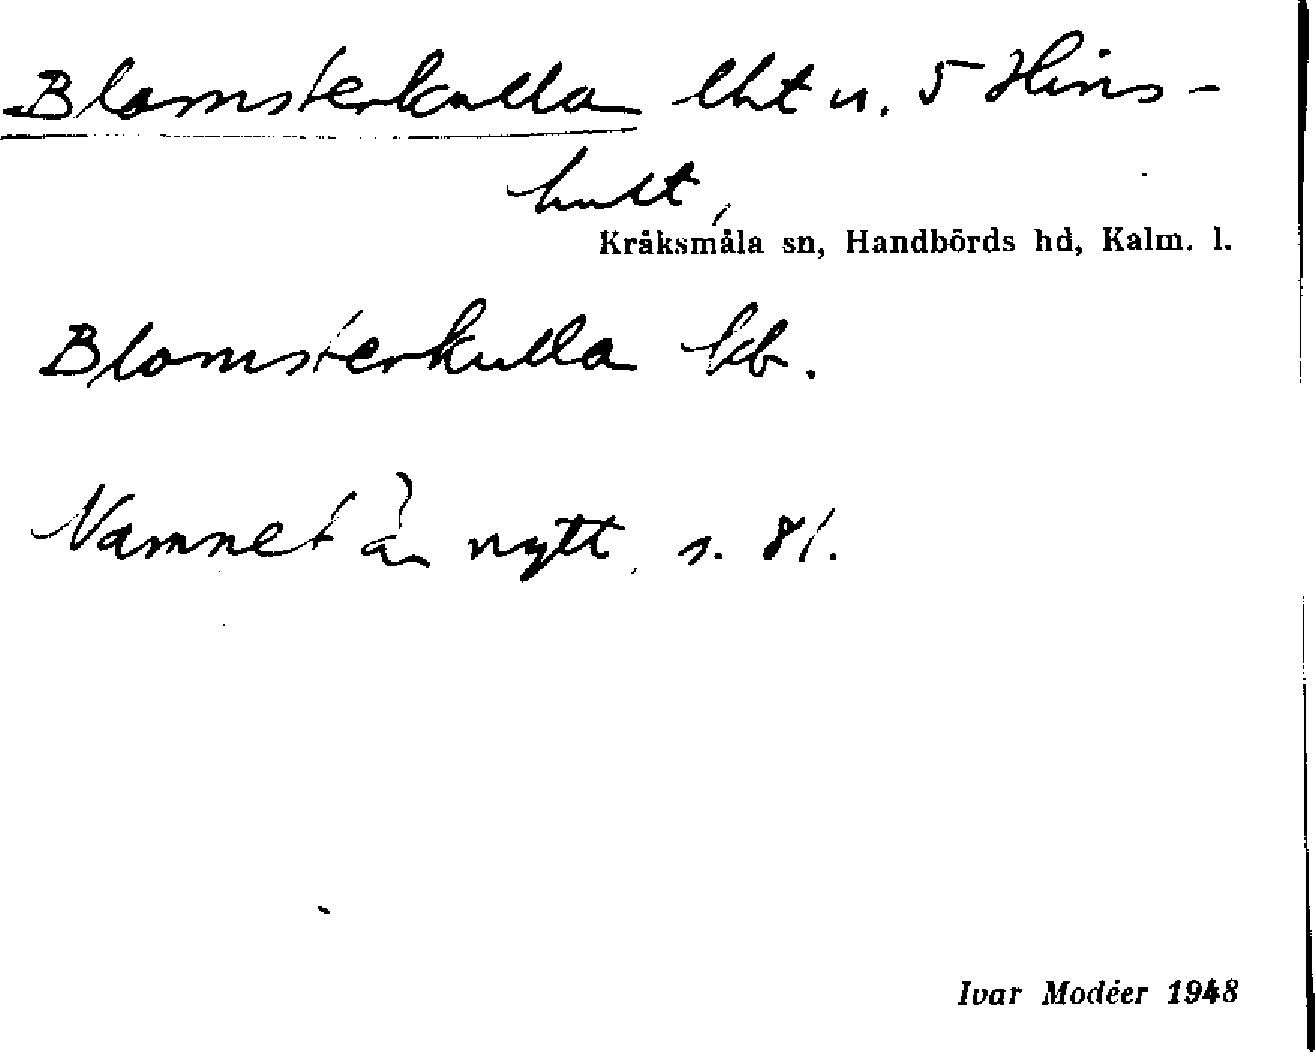 Blomsterkulla lht u. 5 Hins-
hult,
Kråksmåla sn, Handbörds hd, Kalm. l.
Blomsterkulla kb.
Namnet är nytt, s. 81.
Ivar Modéer 1948